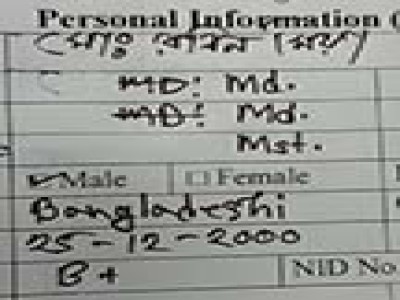 Personal Information (
(মোঃ রবিন মিয়া)
MD: Md.
MD: Md.
Mst.
Male Female
Bangladeshi
25-12-2000
B+ NID No